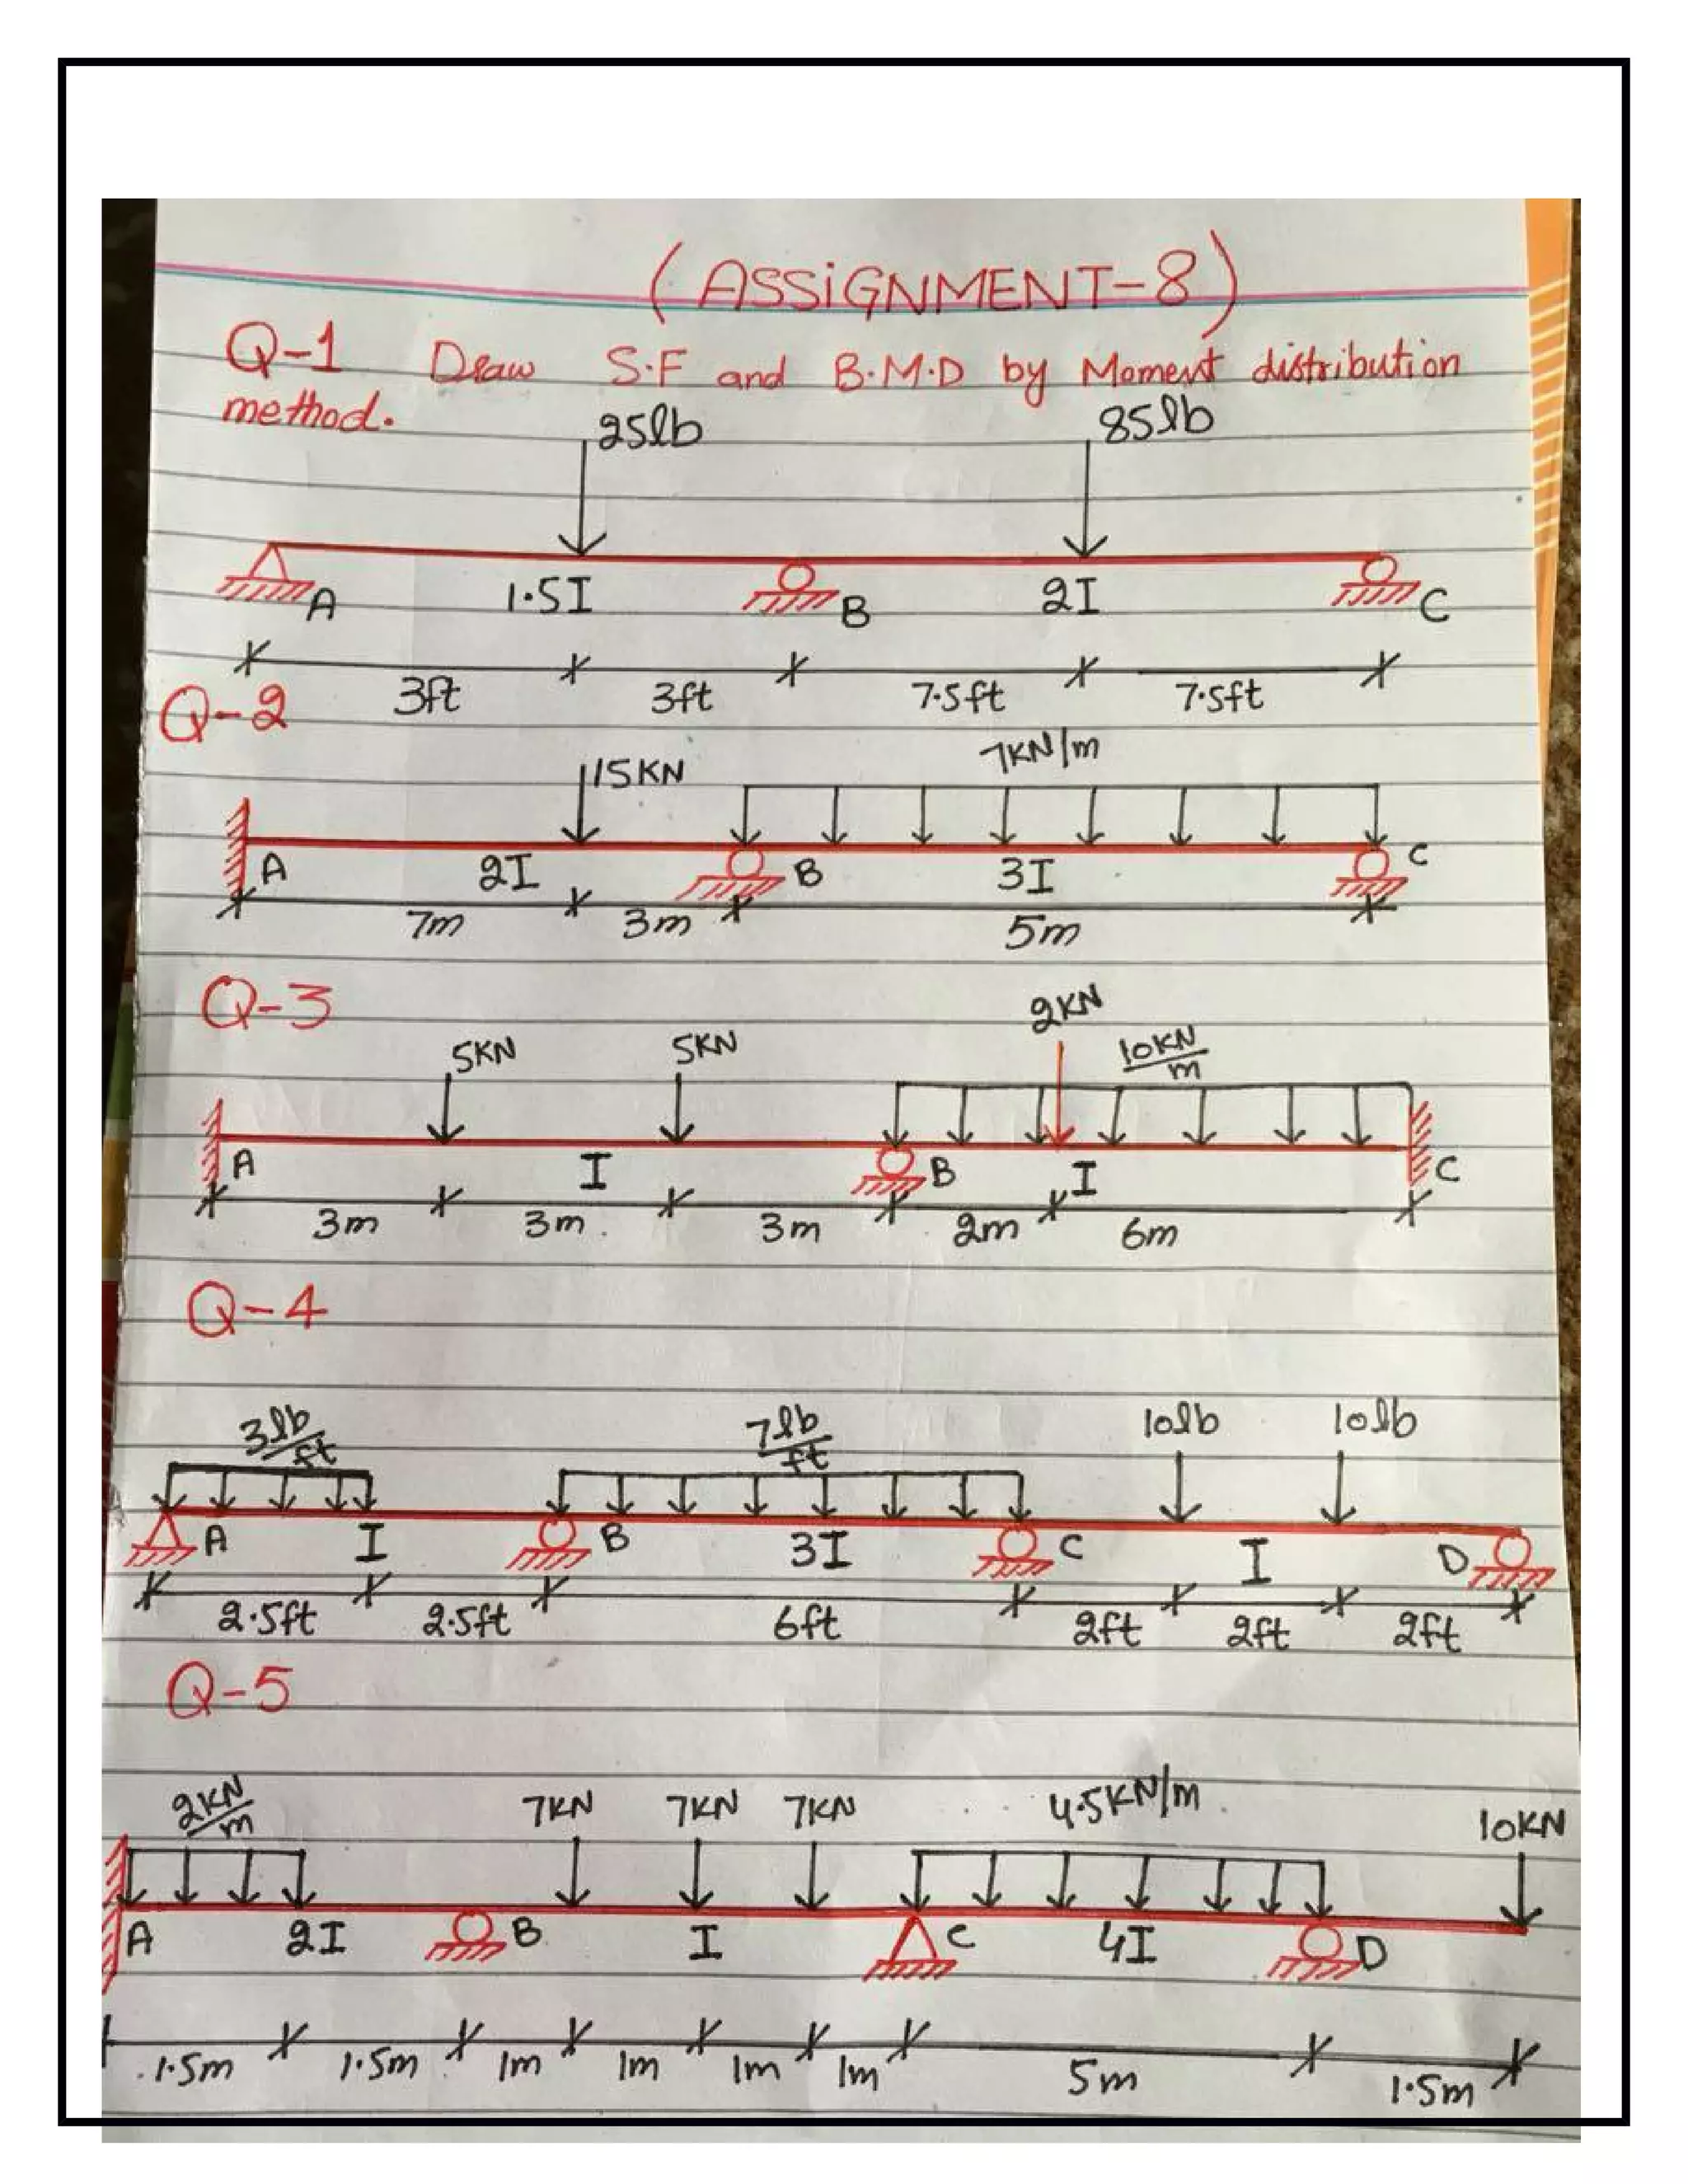 (ASSIGNMENT-8)
Q-1 Draw S.F and B.M.D by Moment distribution
method.
25lb 85lb
A 1.5I B 2I C
3ft 3ft 7.5ft 7.5ft
Q-2
15KN 7KN/m
A 2I B 3I C
7m 3m 5m
Q-3
5KN 5KN 2KN 10KN/m
A I B I C
3m 3m 3m 2m 6m
Q-4
3lb/ft 7lb/ft 10lb 10lb
A I B 3I C I D
2.5ft 2.5ft 6ft 2ft 2ft 2ft
Q-5
2KN/m 7KN 7KN 7KN 4.5KN/m 10KN
A 2I B I C 4I D
1.5m 1.5m 1m 1m 1m 1m 5m 1.5m